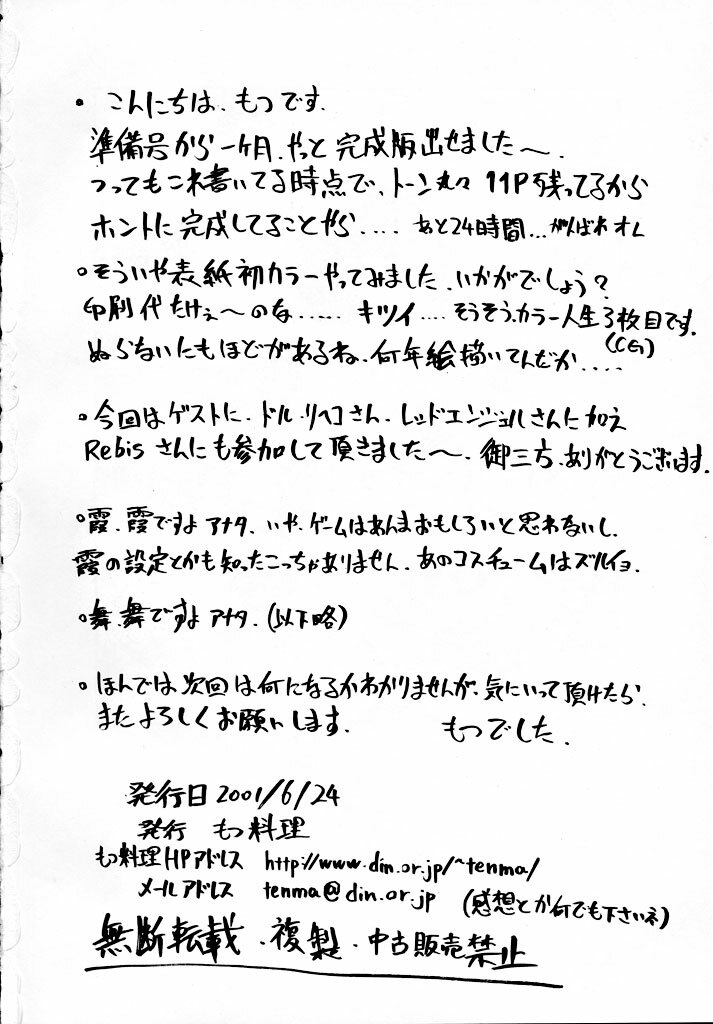 ・こんにちは、もつです。
準備号から一ヶ月、やっと完成版出せました〜。
つってもこれ書いてる時点で、トーン丸々11P残ってるから
ホントに完成してることやら.... あと24時間...がんばれオレ
○そういや表紙初カラーやってみました、いかがでしょう?
印刷代たけぇ〜のな...... キツイ.... そうそう、カラー人生3枚目です。
(CG)
ぬらないにもほどがあるね、何年絵描いてんだか....
○今回はゲストに、ドル・リヘコさん、レッドエンジェルさんに加え
Rebisさんにも参加して頂きました〜。御三方、ありがとうございます。
○霞、霞ですよアナタ、いや、ゲームはあんまおもしろいと思わないし、
霞の設定とかも知ったこっちゃありません、あのコスチュームはズルイョ。
○舞、舞ですよアナタ、(以下略)
○ほんでは次回は何になるかわかりませんが、気にいって頂けたら、
またよろしくお願いします。 もつでした。
発行日2001/6/24
発行 もつ料理
もつ料理HPアドレス http://www.din.or.jp/~tenma/
メールアドレス tenma@din.or.jp (感想とか何でも下さいネ)
無断転載・複製・中古販売禁止